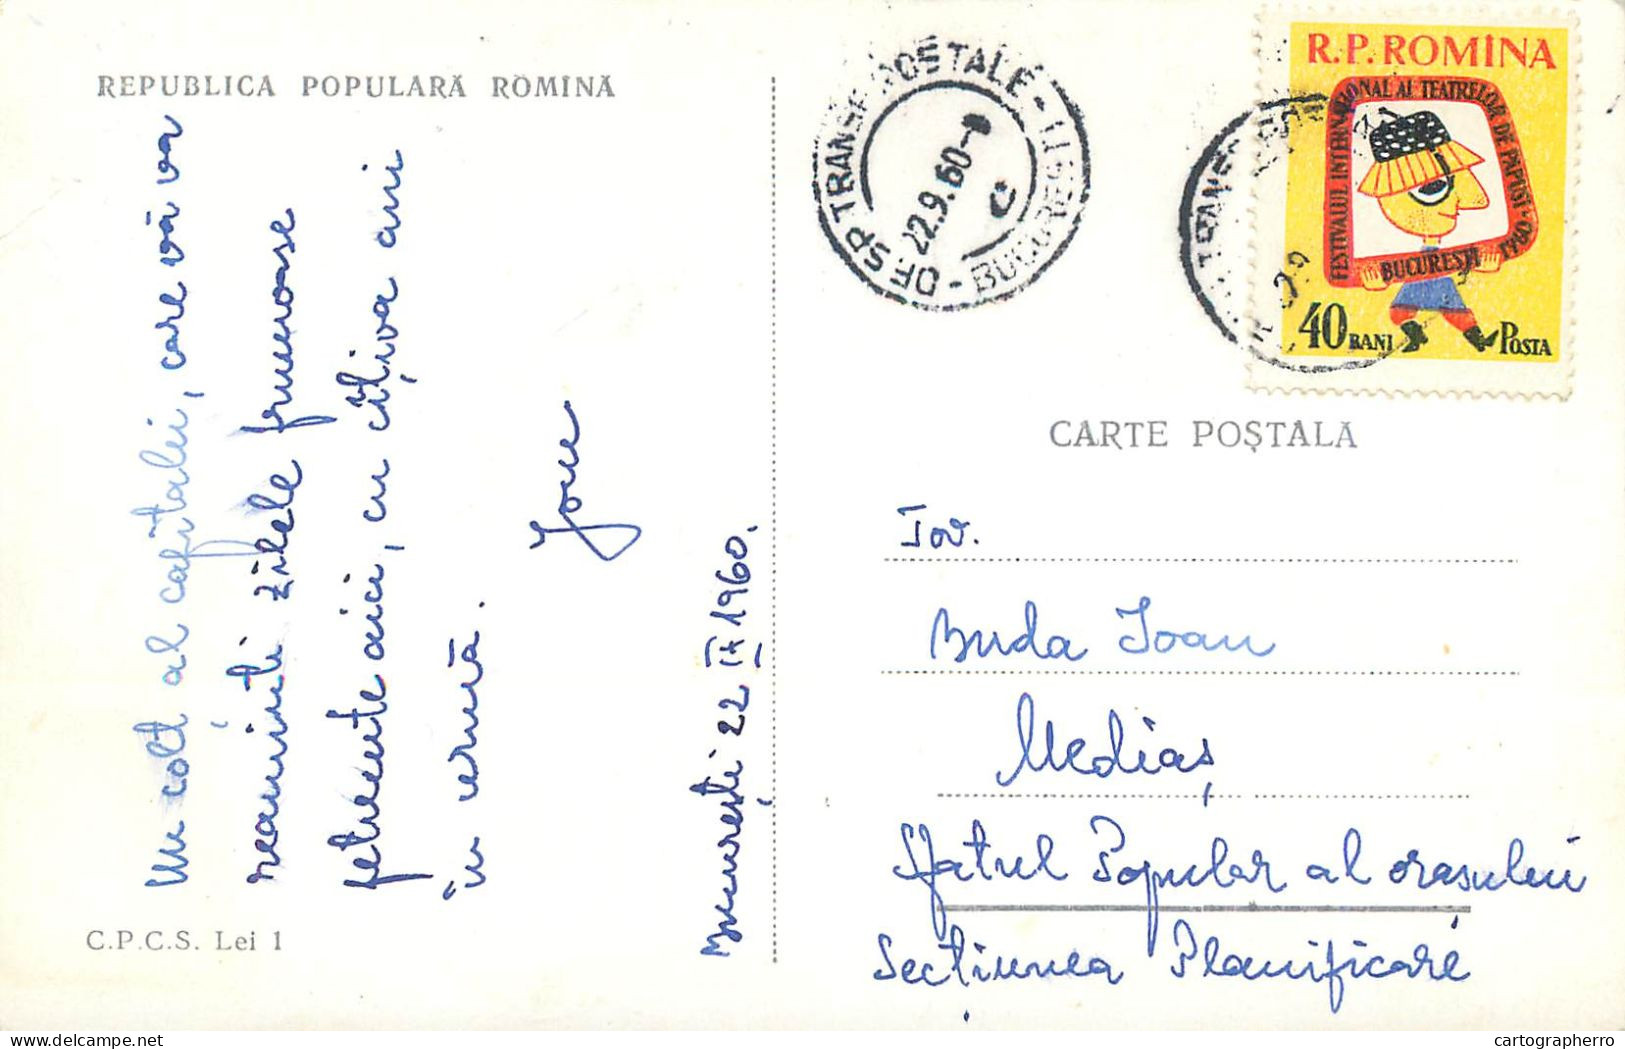 REPUBLICA POPULARĂ ROMINĂ
Un colt al capitalei, care vă va
reaminti zilele frumoase
petrecute aici, cu cîțiva ani
în urmă.
București 22 IX 1960.
C.P.C.S. Lei 1
TRANSP. POSTALE - BUCUREȘTI -
22.9.60
R.P. ROMÎNA
FESTIVALUL INTERNAȚIONAL AL TEATRELOR DE PĂPUȘI
BUCUREȘTI 1960
40 BANI POSTA
CARTE POȘTALĂ
Tov.
Buda Ioan
Mediaș
Sfatul Popular al orasului
Secțiunea Planificare
cartographerro
www.delcampe.net